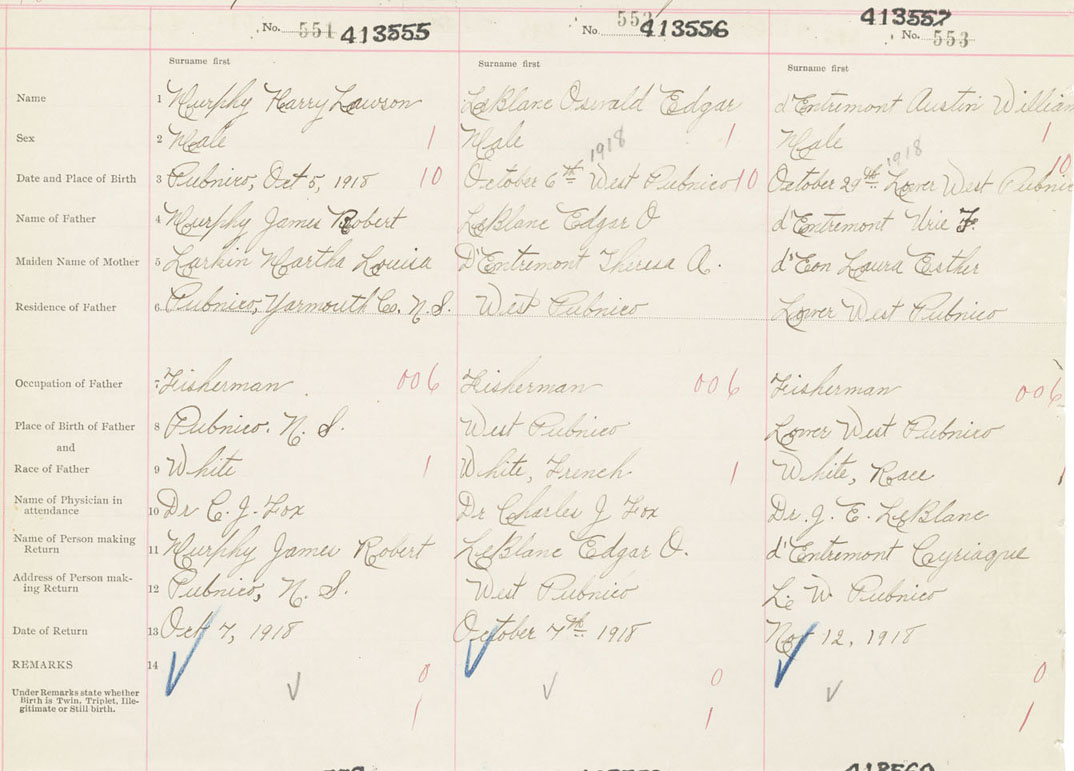 No. 551 413555
No. 552 413556
413557
No. 553
Surname first Surname first Surname first
Name 1 Murphy Harry Lawson LeBlanc Oswald Edgar d'Entremont Austin William
Sex 2 Male 1 Male 1 Male 1
1918 1918
Date and Place of Birth 3 Pubnico, Oct 5, 1918 10 October 6th West Pubnico 10 October 29th Lower West Pubnico 10
Name of Father 4 Murphy James Robert LeBlanc Edgar O d'Entremont Urie F.
Maiden Name of Mother 5 Larkin Martha Louisa D'Entremont Theresa A. d'Eon Laura Esther
Residence of Father 6 Pubnico, Yarmouth Co. N.S. West Pubnico Lower West Pubnico
Occupation of Father 7 Fisherman 006 Fisherman 006 Fisherman 006
Place of Birth of Father 8 Pubnico. N.S. West Pubnico Lower West Pubnico
and
Race of Father 9 White 1 White, French 1 White, Race 1
Name of Physician in
attendance 10 Dr C. J. Fox Dr Charles J Fox Dr. J. E. LeBlanc
Name of Person making
Return 11 Murphy James Robert LeBlanc Edgar O. d'Entremont Cyriaque
Address of Person mak-
ing Return 12 Pubnico, N.S. West Pubnico L. W. Pubnico
Date of Return 13 Oct 7, 1918 October 7th 1918 Nov 12, 1918
REMARKS 14 0 0 0
Under Remarks state whether
Birth is Twin, Triplet, Ille-
gitimate or Still birth. 1 1 1